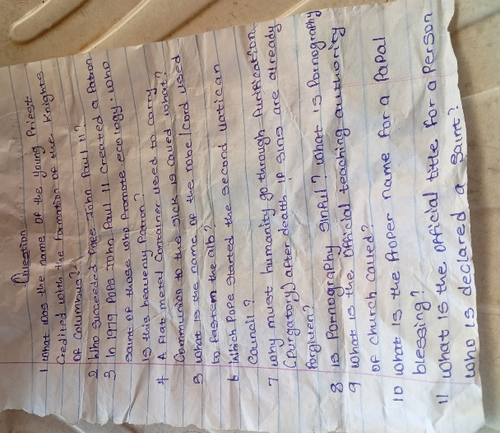 Question
1 What was the name of the young Priest
Credited with the formation of the Knights
of Columbus?
2 Who succeeded Pope John Paul II?
3 In 1979 Pope John Paul II created a Patron
saint of those who Promote ecology. who
is this heavenly Patron?
4 A flat metal Container used to carry
Communion to the sick is called what?
5 What is the name of the robe/Cord used
to fasten the alb?
6 Which Pope started the second vatican
Council?
7 why must humanity go through Purification
(Purgatory) after death if sins are already
forgiven?
8 is Pornography sinful? what is Pornography
9 What is the official teaching authority
of church called?
10 What is the Proper name for a Papal
blessing?
11 What is the official title for a Person
who is declared a saint?